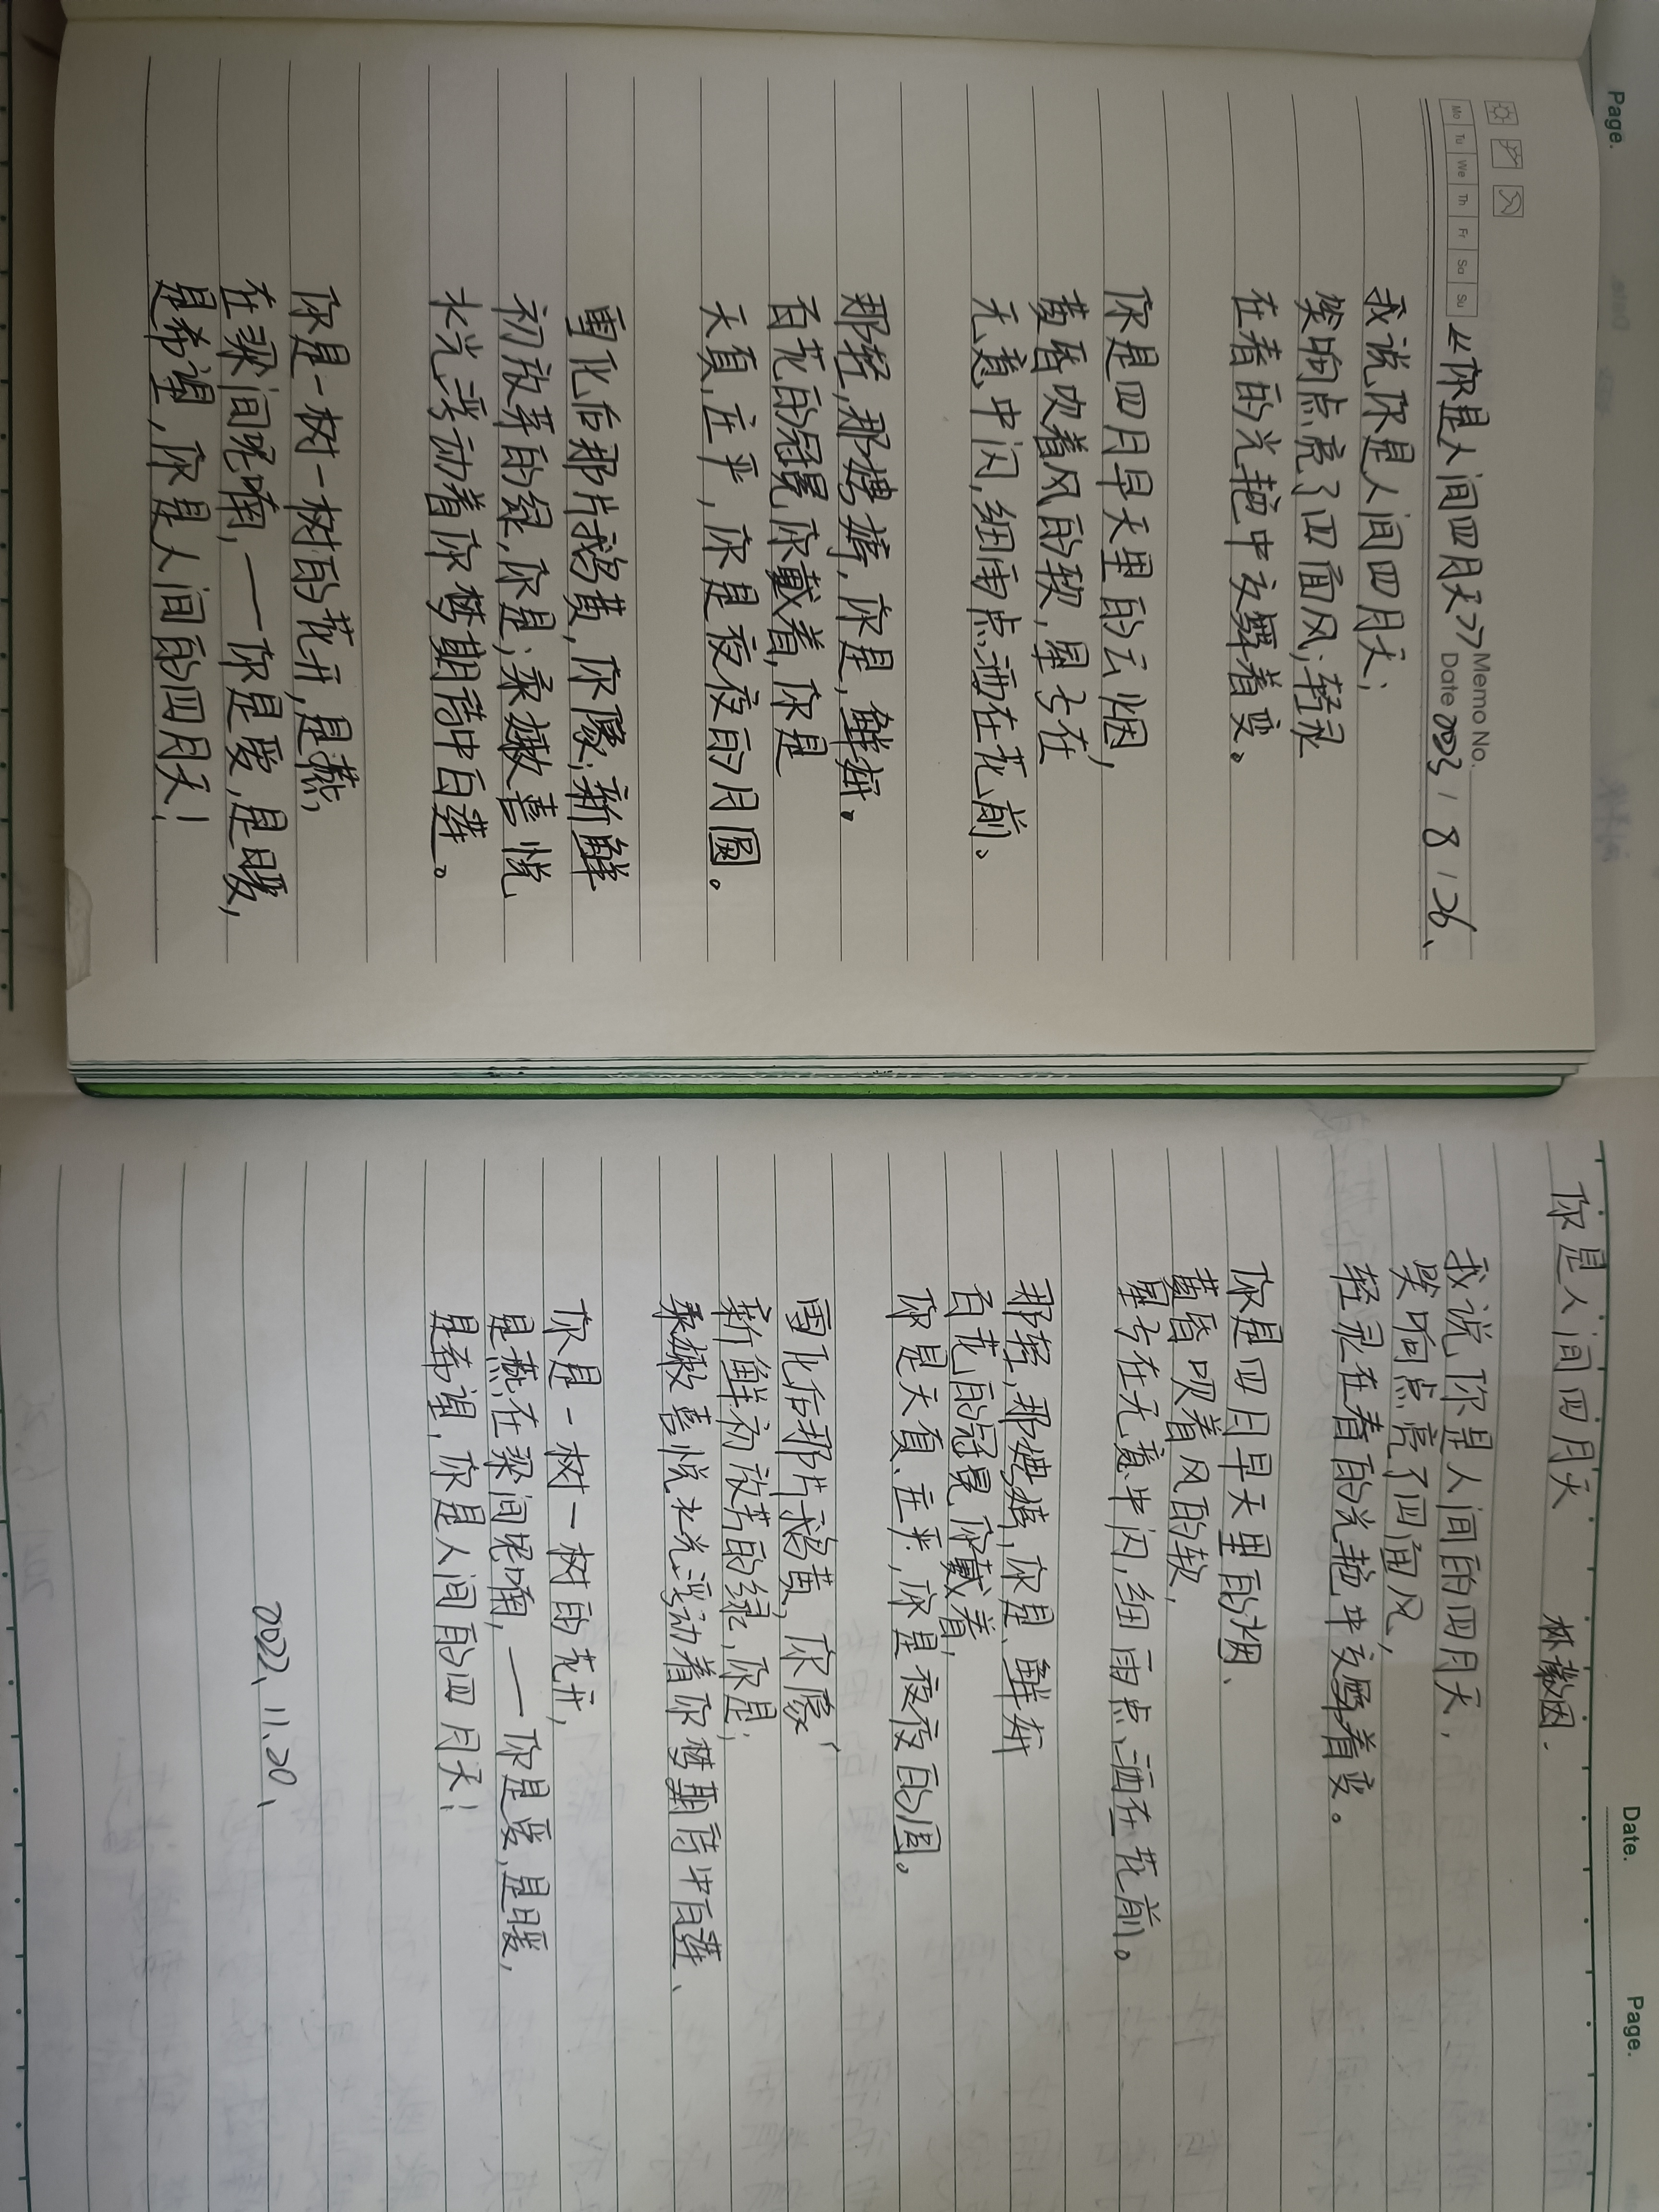 Page.
Mo Tu We Th Fr Sa Su
《你是人间四月天》
Memo No.
Date 2023 / 8 / 26、
我说你是人间四月天；
笑响点亮了四面风；轻灵
在春的光艳中交舞着变。
你是四月早天里的云烟，
黄昏吹着风的软，星子在
无意中闪，细雨点洒在花前。
那轻，那娉婷，你是，鲜妍。
百花的冠冕你戴着，你是
天真，庄严，你是夜夜的月圆。
雪化后那片鹅黄，你像；新鲜
初放芽的绿，你是；柔嫩喜悦
水光浮动着你梦期待中白莲。
你是一树一树的花开，是燕，
在梁间呢喃，——你是爱，是暖，
是希望，你是人间的四月天！
Date.
Page.
你是人间四月天 林徽因.
我说你是人间的四月天，
笑响点亮了四面风，
轻灵在春的光艳中交舞着变。
你是四月早天里的烟、
黄昏吹着风的软，
星子在无意中闪，细雨点洒在花前。
那轻，那娉婷，你是、鲜妍
百花的冠冕你戴着，
你是天真、庄严，你是夜夜的圆。
雪化后那片鹅黄，你像，
新鲜初放芽的绿，你是；
柔嫩喜悦水光浮动着你梦期待中白莲、
你是一树一树的花开，
是燕在梁间呢喃，——你是爱，是暖，
是希望，你是人间的四月天！
2022、11、20、